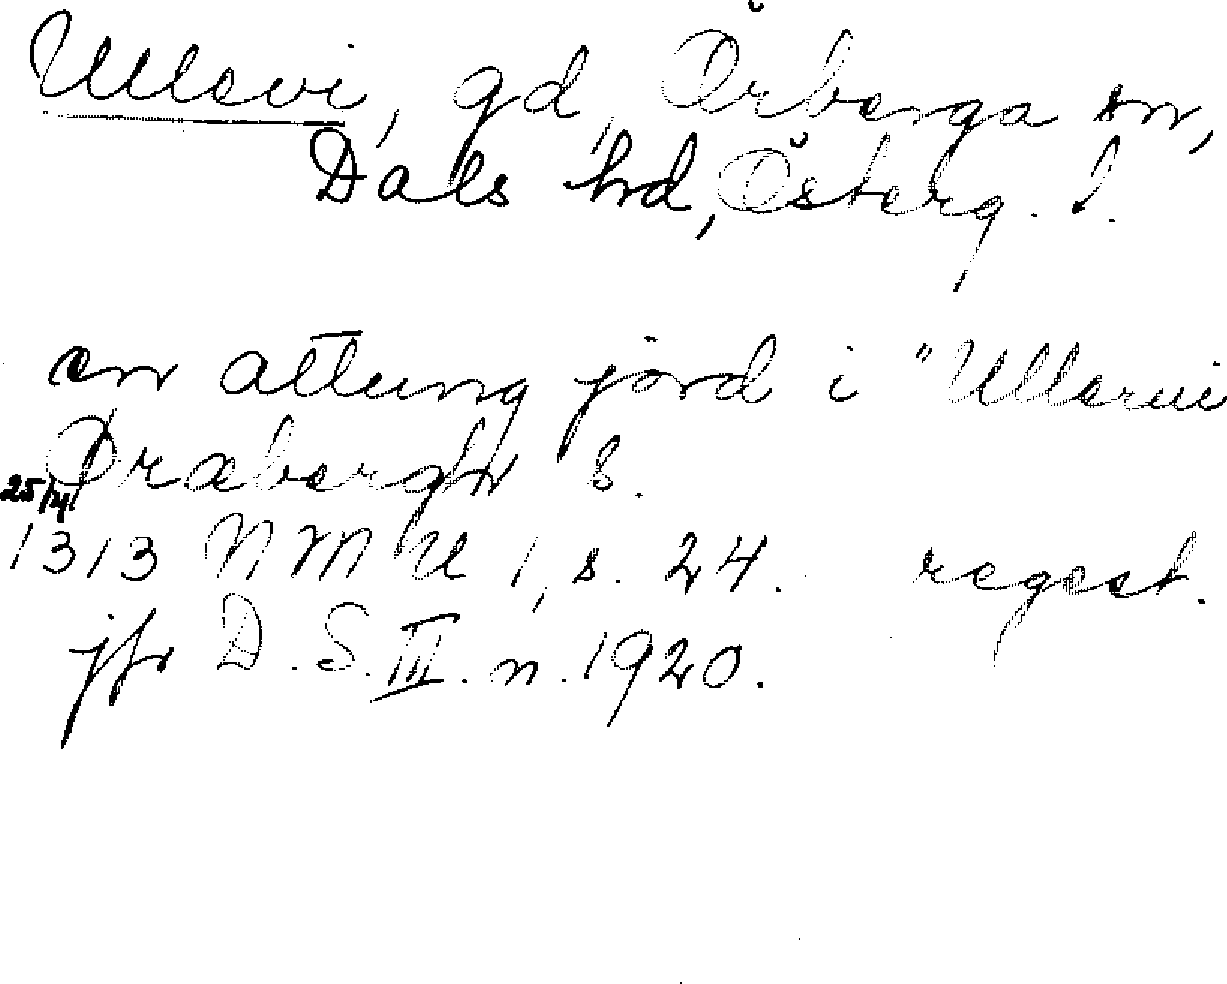 Ullevi, gd, Örberga sn,
Dals hd, Österg. l.
en attung jord i "Ullerui
Ørabergh s.
25/4
1313 NMU 1, s. 24. regest.
jfr D.S. III. n. 1920.